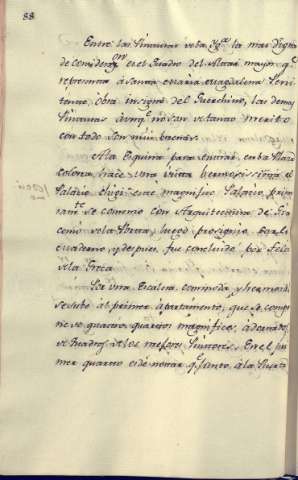 88
Entre las Pinturas de ba Yg.ª la mas digna
de consideraz.on es el Quadro del Altar mayor, q.e
representa à Santa Maria Magdalena Peni
tente, obra insigne del Guerchino, las demas
Pinturas aunq.e no son de tanto merito
con todo son mui buenas.
A la Esquina para entrar en la Plaza
Colona hace una vista hermosissima el
Palacio Chigi: este magnifico Palacio prime
ram.te se comenzo con Arquitectura de Gia
como de la Porta, luego prosiguio Carlo
Maderno, y despues fue concluido por Feliz
de la Greca.
Por una Escalera commoda, y hermosa
se sube al primer apartamento, que se compo
ne de quatro quartos magnificos, adornados
de Quadros de los mejores Pintores. En el pri
mer quarto es de notar q.e junto à la Puerta